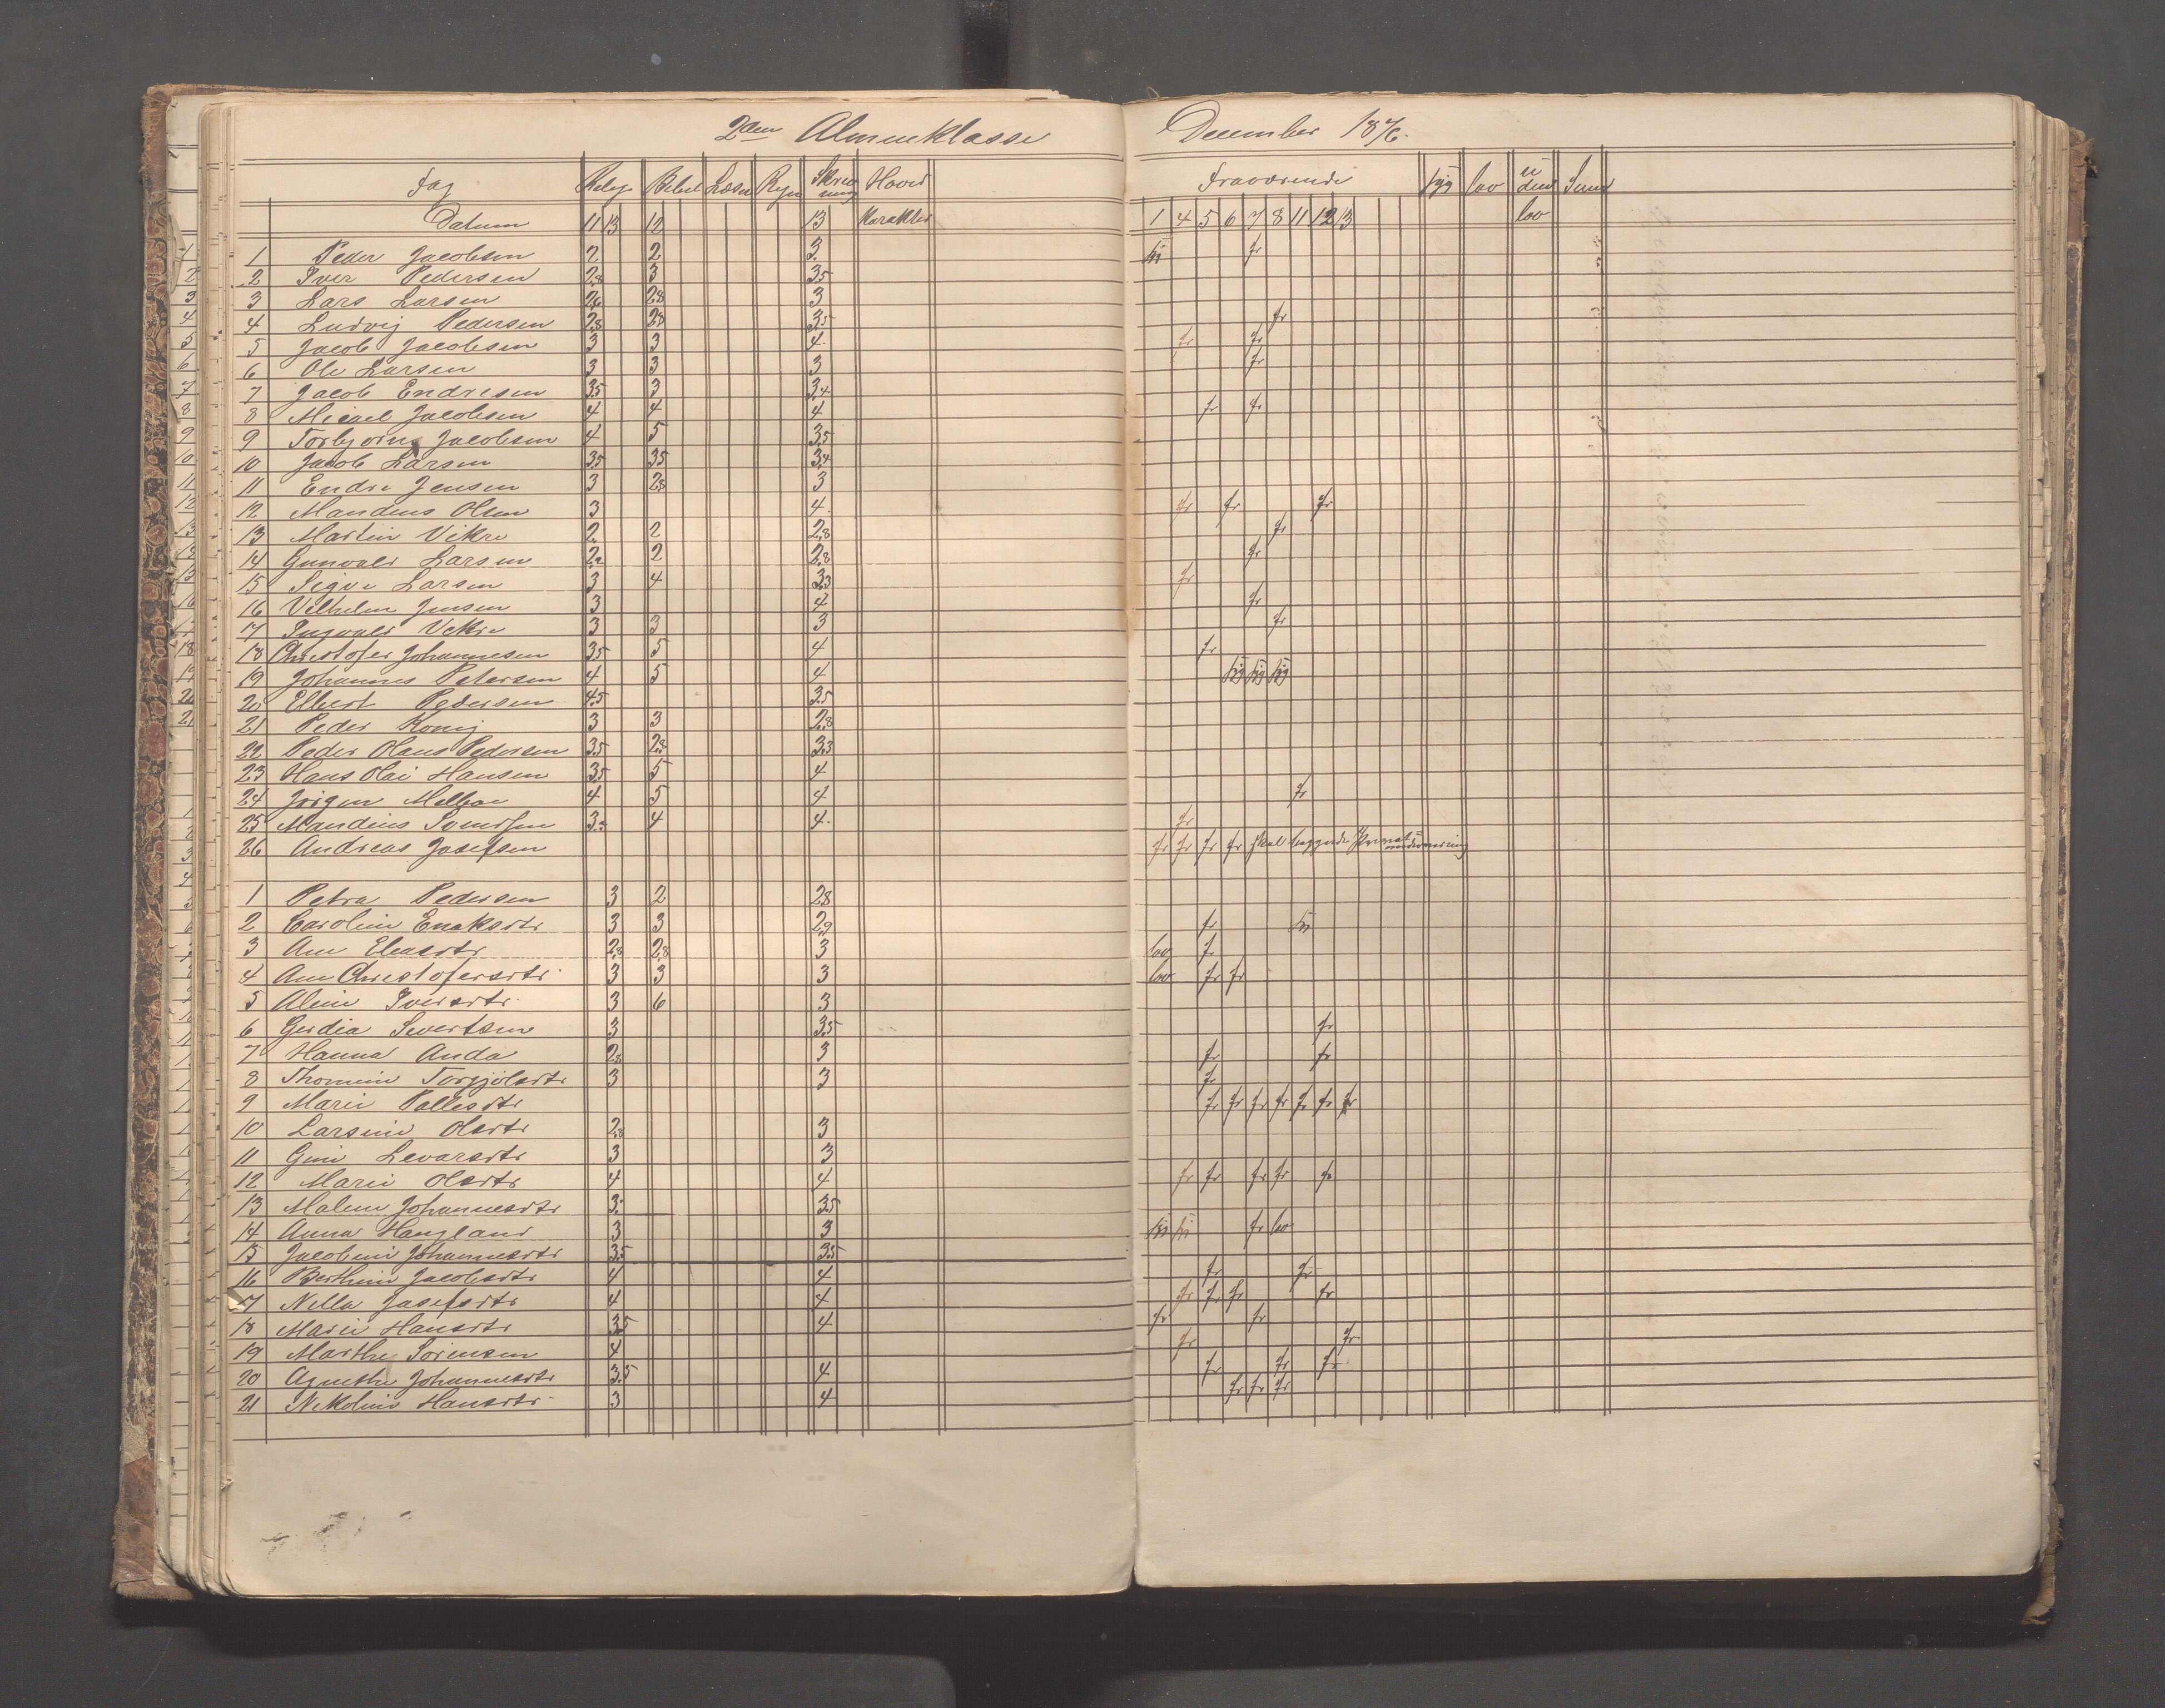 2den Almueklasse December 1876.
Fag Relig Bibel Læsn Regn Skrivning Hoved Fraværende syg lov uden Sum
Datum 11 13 12 13 Karakter 1 4 5 6 7 8 11 12 13 lov
1 Peder Jacobsen 2 2 3 fr
2 Iver Pedersen 2,8 3 3,5
3 Lars Larsen 2,6 2,8 3
4 Ludvig Pedersen 2,8 2,8 3,5 fr
5 Jacob Jacobsen 3 3 4 fr fr
6 Ole Larsen 3 3 3 fr
7 Jacob Endresen 3,5 3 3,4
8 Micael Jacobsen 4 4 4 fr fr
9 Torbjørn Jacobsen 4 5 3,5
10 Jacob Larsen 3,5 3,5 3,4
11 Endre Jensen 3 2,8 3
12 Mandius Olsen 3 4 fr fr fr
13 Martin Vikre 2 2 2,8 fr
14 Gunvald Larsen 2,2 2 2,8 fr
15 Sigve Larsen 3 4 3,3 fr
16 Vilhelm Jensen 3 4 fr
17 Ingvald Vikre 3 3 3 fr
18 Christofer Johannesen 3,5 5 4 fr
19 Johannes Petersen 4 5 4 syg syg syg
20 Elbert Pedersen 4,5 3,5
21 Peder Konig 3 3 2,8
22 Peder Olaus Pedersen 3,5 2,8 3,3
23 Hans Olai Hansen 3,5 5 4
24 Jørgen Melbøe 4 5 4 fr
25 Mandius Svendsen 4 4 fr
26 Andreas Josefsen fr fr fr fr skal Privatundervisning
1 Petra Pedersen 3 2 2,8
2 Caroline Enoksdtr 3 3 2,9 fr
3 Ane Eliasdtr 2,8 2,8 3 lov f
4 Ane Christofersdtr 3 3 3 lov fr fr
5 Aline Iversdtr 3 6 3
6 Gerdia Sivertsen 3 3,5 fr
7 Hanna Anda 2,8 3 fr fr
8 Thomine Torgjelsdtr 3 3 fr
9 Marie Pallesdtr fr fr fr fr fr fr fr
10 Larsine Olsdtr 2,8 3
11 Gine Levarsdtr 3 3
12 Marie Olsdtr 4 4 fr fr fr fr fr
13 Malene Johannesdtr 3 3,5
14 Anna Haugland 3 3 fr lov
15 Jacobine Johannesdtr 3,5 3,5
16 Berthine Jacobsdtr 4 4 fr fr
17 Nella Josefsdtr 4 4 fr fr fr fr
18 Marie Hansdtr 3,5 4 fr fr
19 Marthe Sørensen 4 fr fr
20 Agnethe Johannesdtr 3,5 4 fr fr fr
21 Nikoline Hansdtr 3 4 fr fr fr